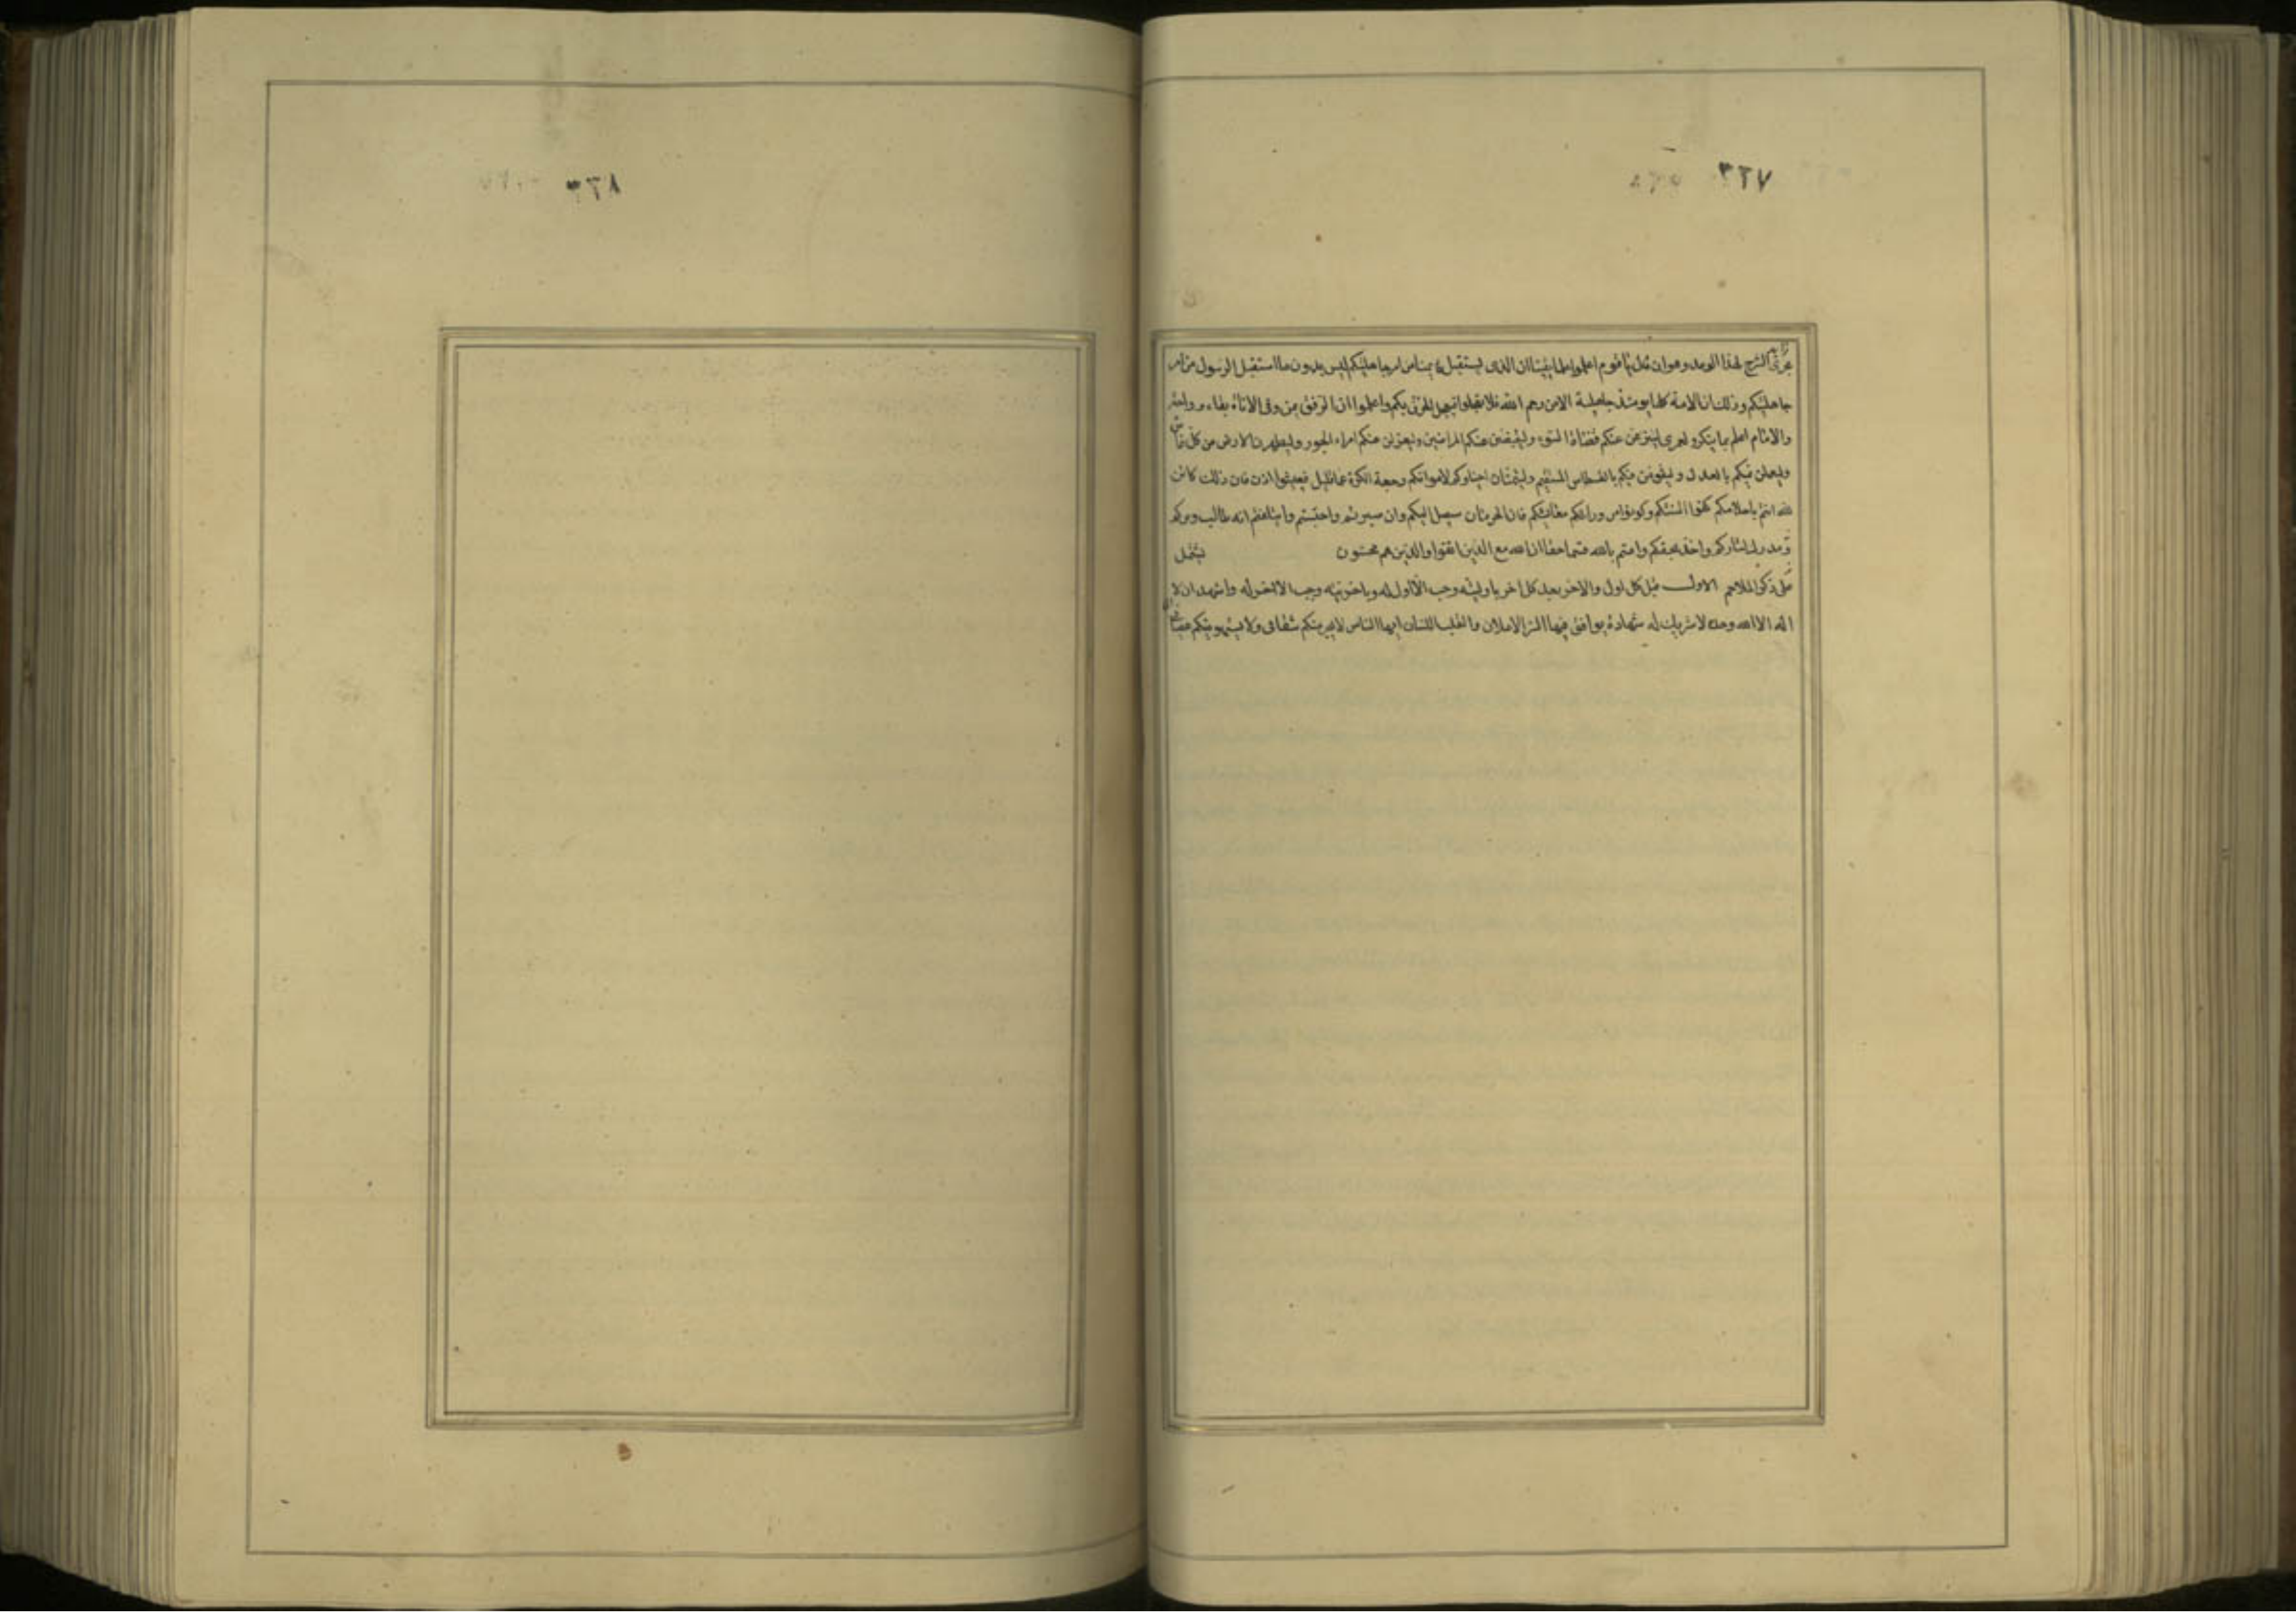 ٣٦٧
مجرى الشرح لهذا الوعد وهو ان قال يا قوم اعلموا علما يقينا ان الذى يستقبل قايمنا من امر جاهليتكم ليس بدون ما استقبل الرسول من امر
جاهليتكم وذلك ان الامة كلها يومئذ جاهلية الا من رحم الله فلا تعجلوا فيعجل الخرق بكم واعلموا ان الرفق يمن وفى الاناة بقاء و راحة
والامام اعلم بما ينكر ولعمرى لينزعن عنكم قضاة السوء وليقبضن عنكم المراضين وليعزلن عنكم امراء الجور وليطهرن الارض من كل غاش
وليعملن فيكم بالعدل وليقومن فيكم بالقسطاس المستقيم وليتمنان احياؤكم لامواتكم رجعة الكرة عما قليل فيعيشوا اذن فان ذلك كائن
لله انتم باحلامكم كفوا السنتكم وكونوا من وراء معايشكم فان الحرمان سيصل اليكم وان صبرتم واحتسبتم وايتلفتم انه طالب وتركم
ومدرك لثاركم واخذ بحقكم واقسم بالله قسما حقا ان الله مع الذين اتقوا والذين هم محسنون يشتمل
على ذكر الملاحم الاول قبل كل اول والاخر بعد كل اخر باوليته وجب الا اول له وباخريته وجب الا اخر له واشهد ان لا
اله الا الله وحده لا شريك له شهادة يوافق فيها السر الاعلان والقلب اللسان ايها الناس لا يجرمنكم شقاقى ولا يستهوينكم عصيانى
٣٦٨